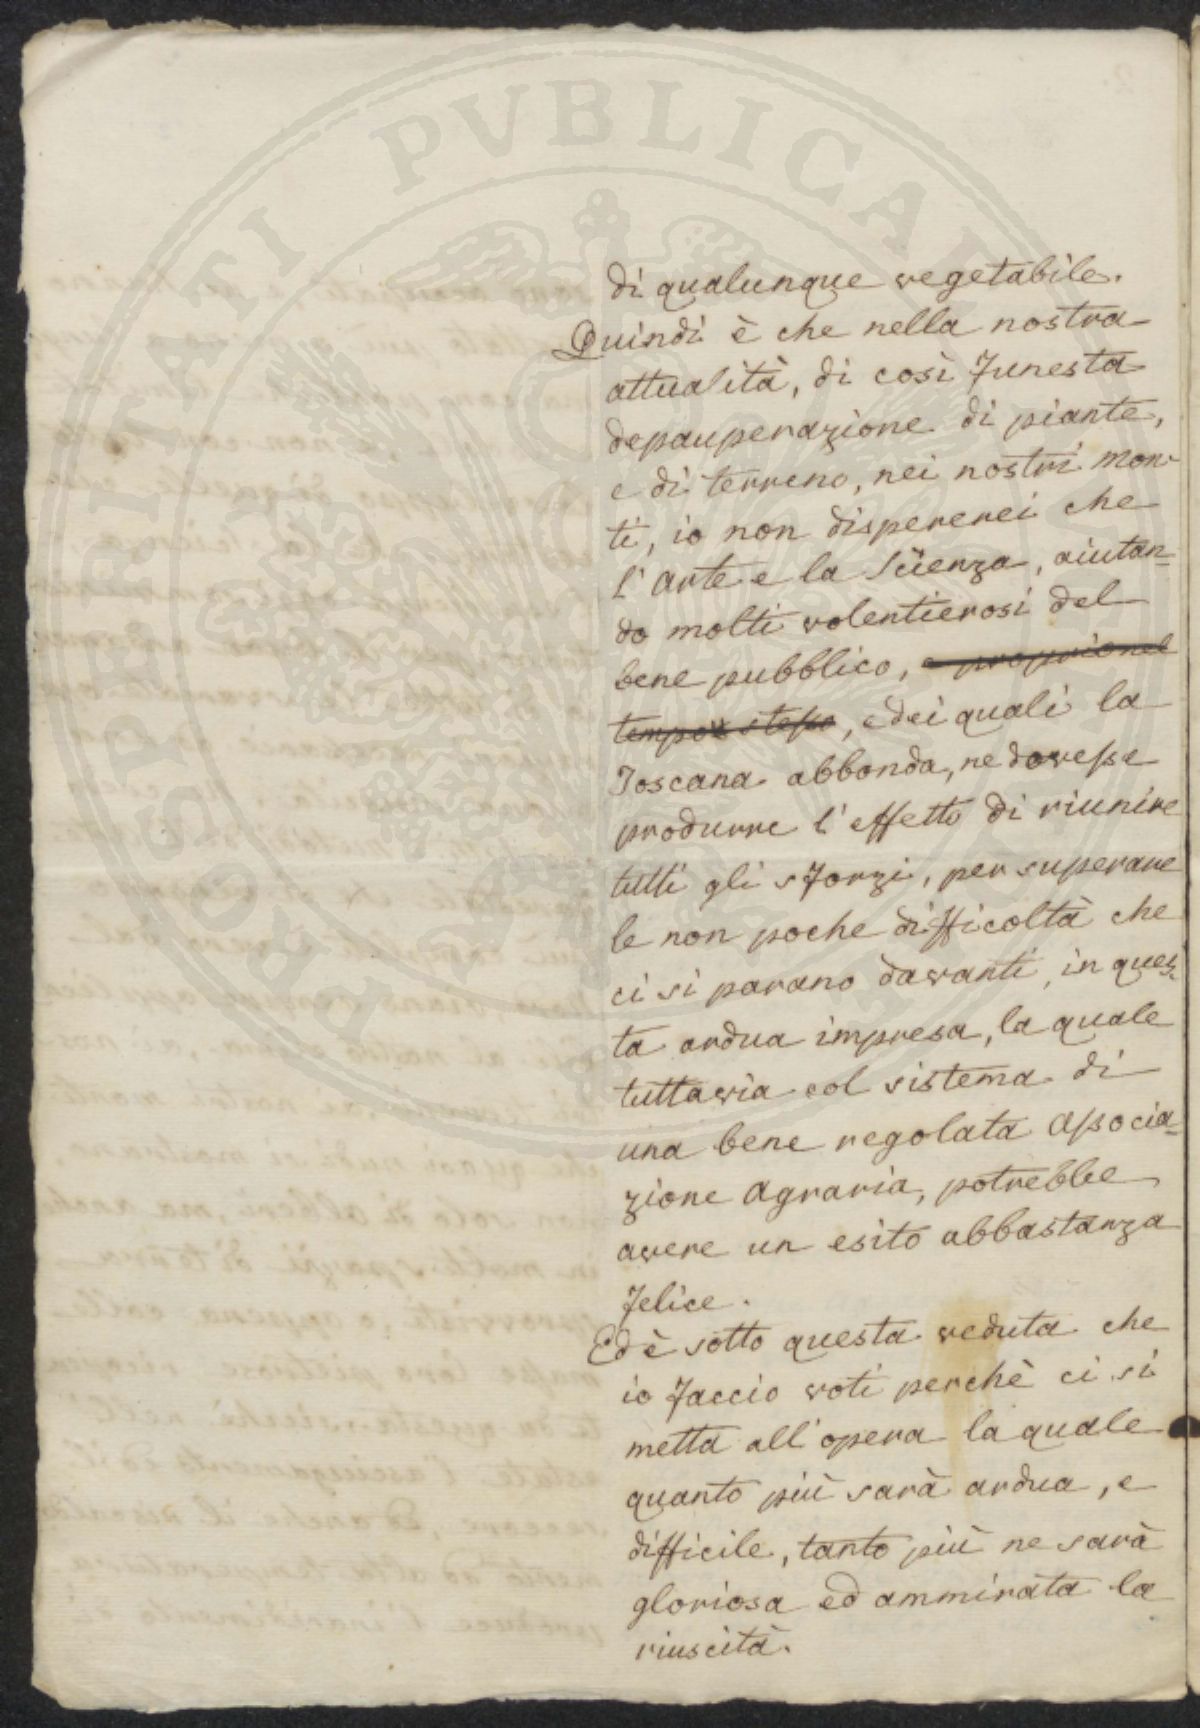 PROSPERITATI PVBLICAE
di qualunque vegetabile.
Quindi è che nella nostra
attualità, di così funesta
depauperazione di piante,
e di terreno, nei nostri mon-
ti, io non dispererei che
l'arte e la Scienza, aiutan=
do molti volentierosi del
bene pubblico, e proprio nel
tempo stesso, e dei quali la
Toscana abbonda, ne dovesse
produrre l'effetto di riunire
tutti gli sforzi, per superare
le non poche difficoltà che
ci si parano davanti, in ques-
ta ardua impresa, la quale
tuttavia col sistema di
una bene regolata associa=
zione agraria, potrebbe
avere un esito abbastanza
felice.
Ed è sotto questa veduta che
io faccio voti perchè ci si
metta all'opera la quale
quanto più sarà ardua, e
difficile, tanto più ne sarà
gloriosa ed ammirata la
riuscità.